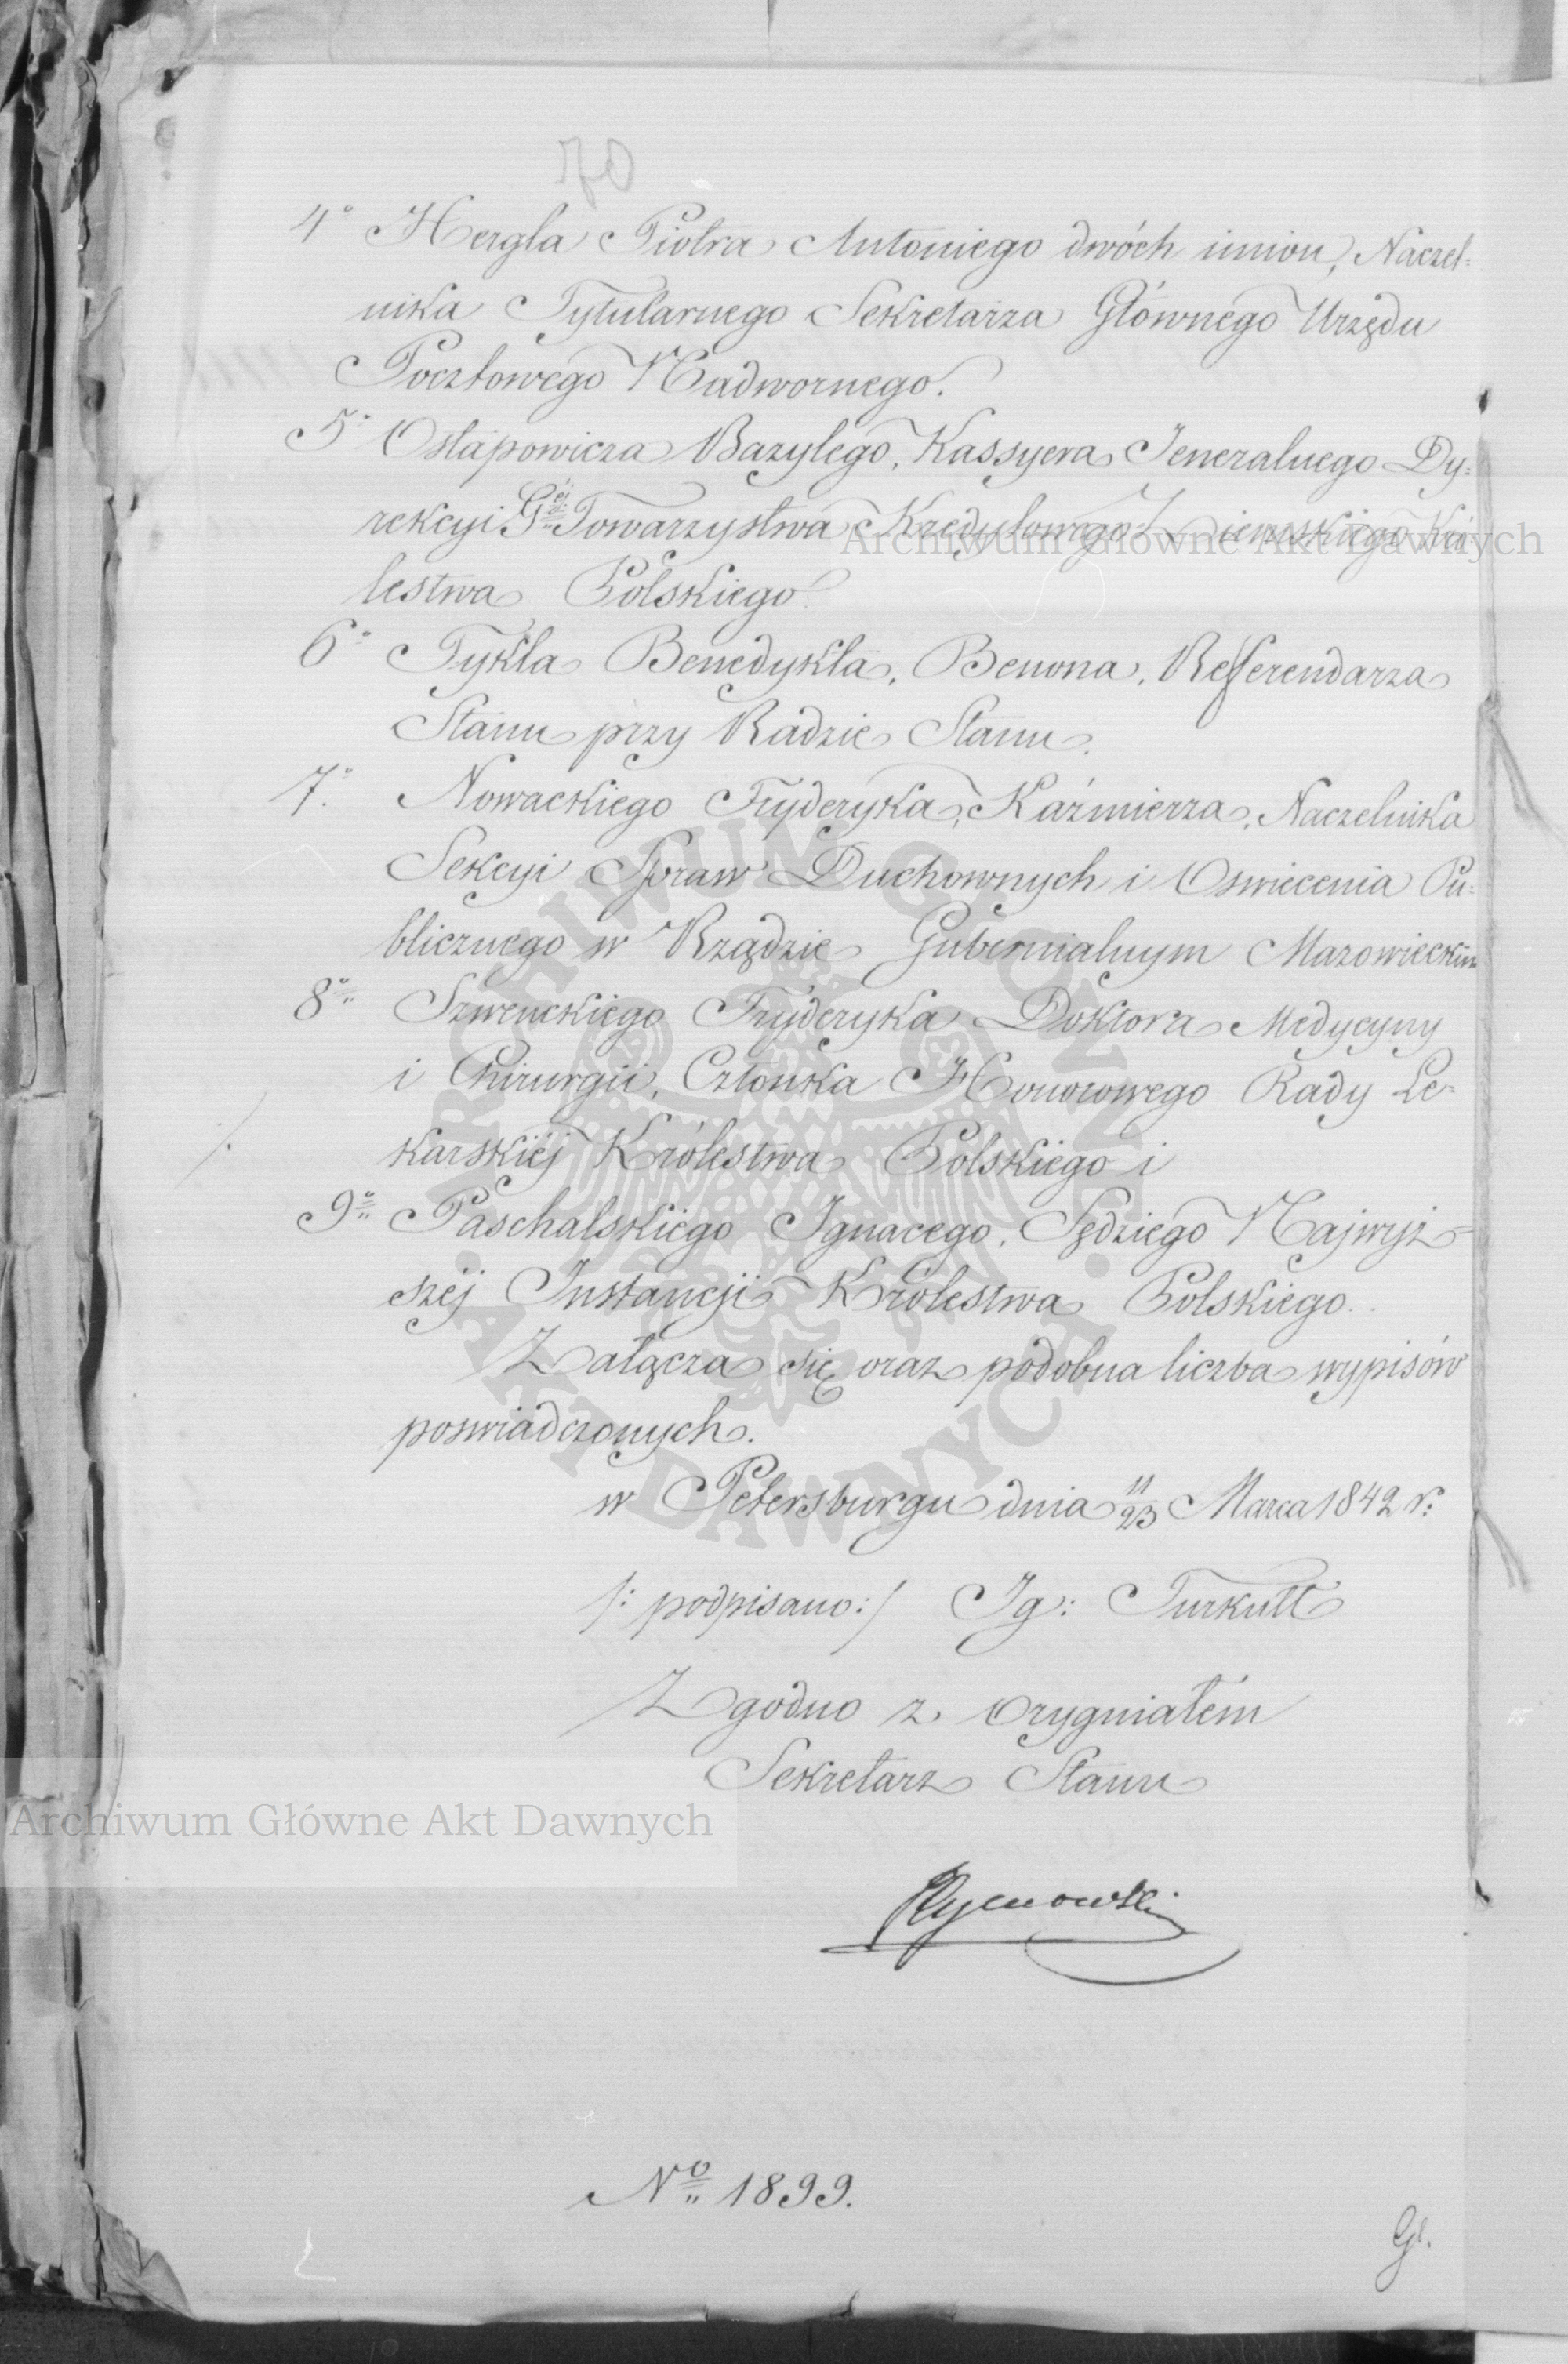 70
4° Hergla Piotra Antoniego dwóch imion, Naczel=
nika Tytularnego Sekretarza Głównego Urzędu
Pocztowego Nadwornego.
5° Ostapowicza Bazylego, Kassyera Jeneralnego Dy=
rekcyi Gł:éj Towarzystwa Kredytowego Ziemskiego Kró=
lestwa Polskiego.
6° Tykla Benedykta, Benona, Referendarza
Stanu przy Radzie Stanu.
7° Nowackiego Fryderyka, Kaźmierza, Naczelnika
Sekcyi Spraw Duchownych i Oswiecenia Pu=
blicznego w Rządzie Gubernialnym Mazowieckim
8° Szwenckiego Fryderyka Doktora Medycyny
i Chirurgii, Członka Honorowego Rady Le=
karskiéj Królestwa Polskiego i
9° Paschalskiego Ignacego, Sędziego Najwyż=
széj Instancji Królestwa Polskiego.
Załącza się oraz podobna liczba wypisów
poswiadczonych.
w Petersburgu dnia 11/23 Marca 1842 r:
/: podpisano :/ Ig: Turkułł
Zgodno z Orygniałem
Sekretarz Stanu
Rymowski
Nº 1899.
Gł.
Archiwum Główne Akt Dawnych
Archiwum Główne Akt Dawnych
ARCHIWUM GŁÓWNE AKT DAWNYCH